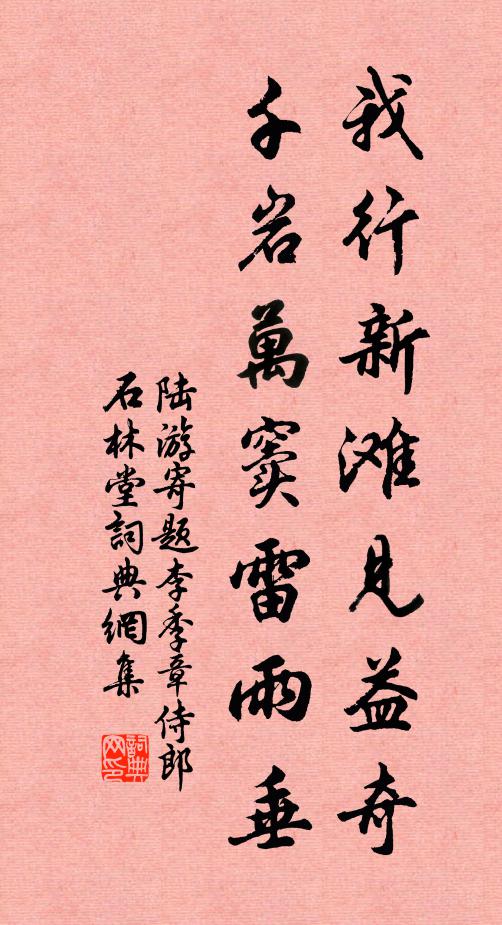 我行新滩見益奇
千岩萬竇雷雨垂
陆游寄题李季章侍郎
石林堂詞典網集
詞典网印